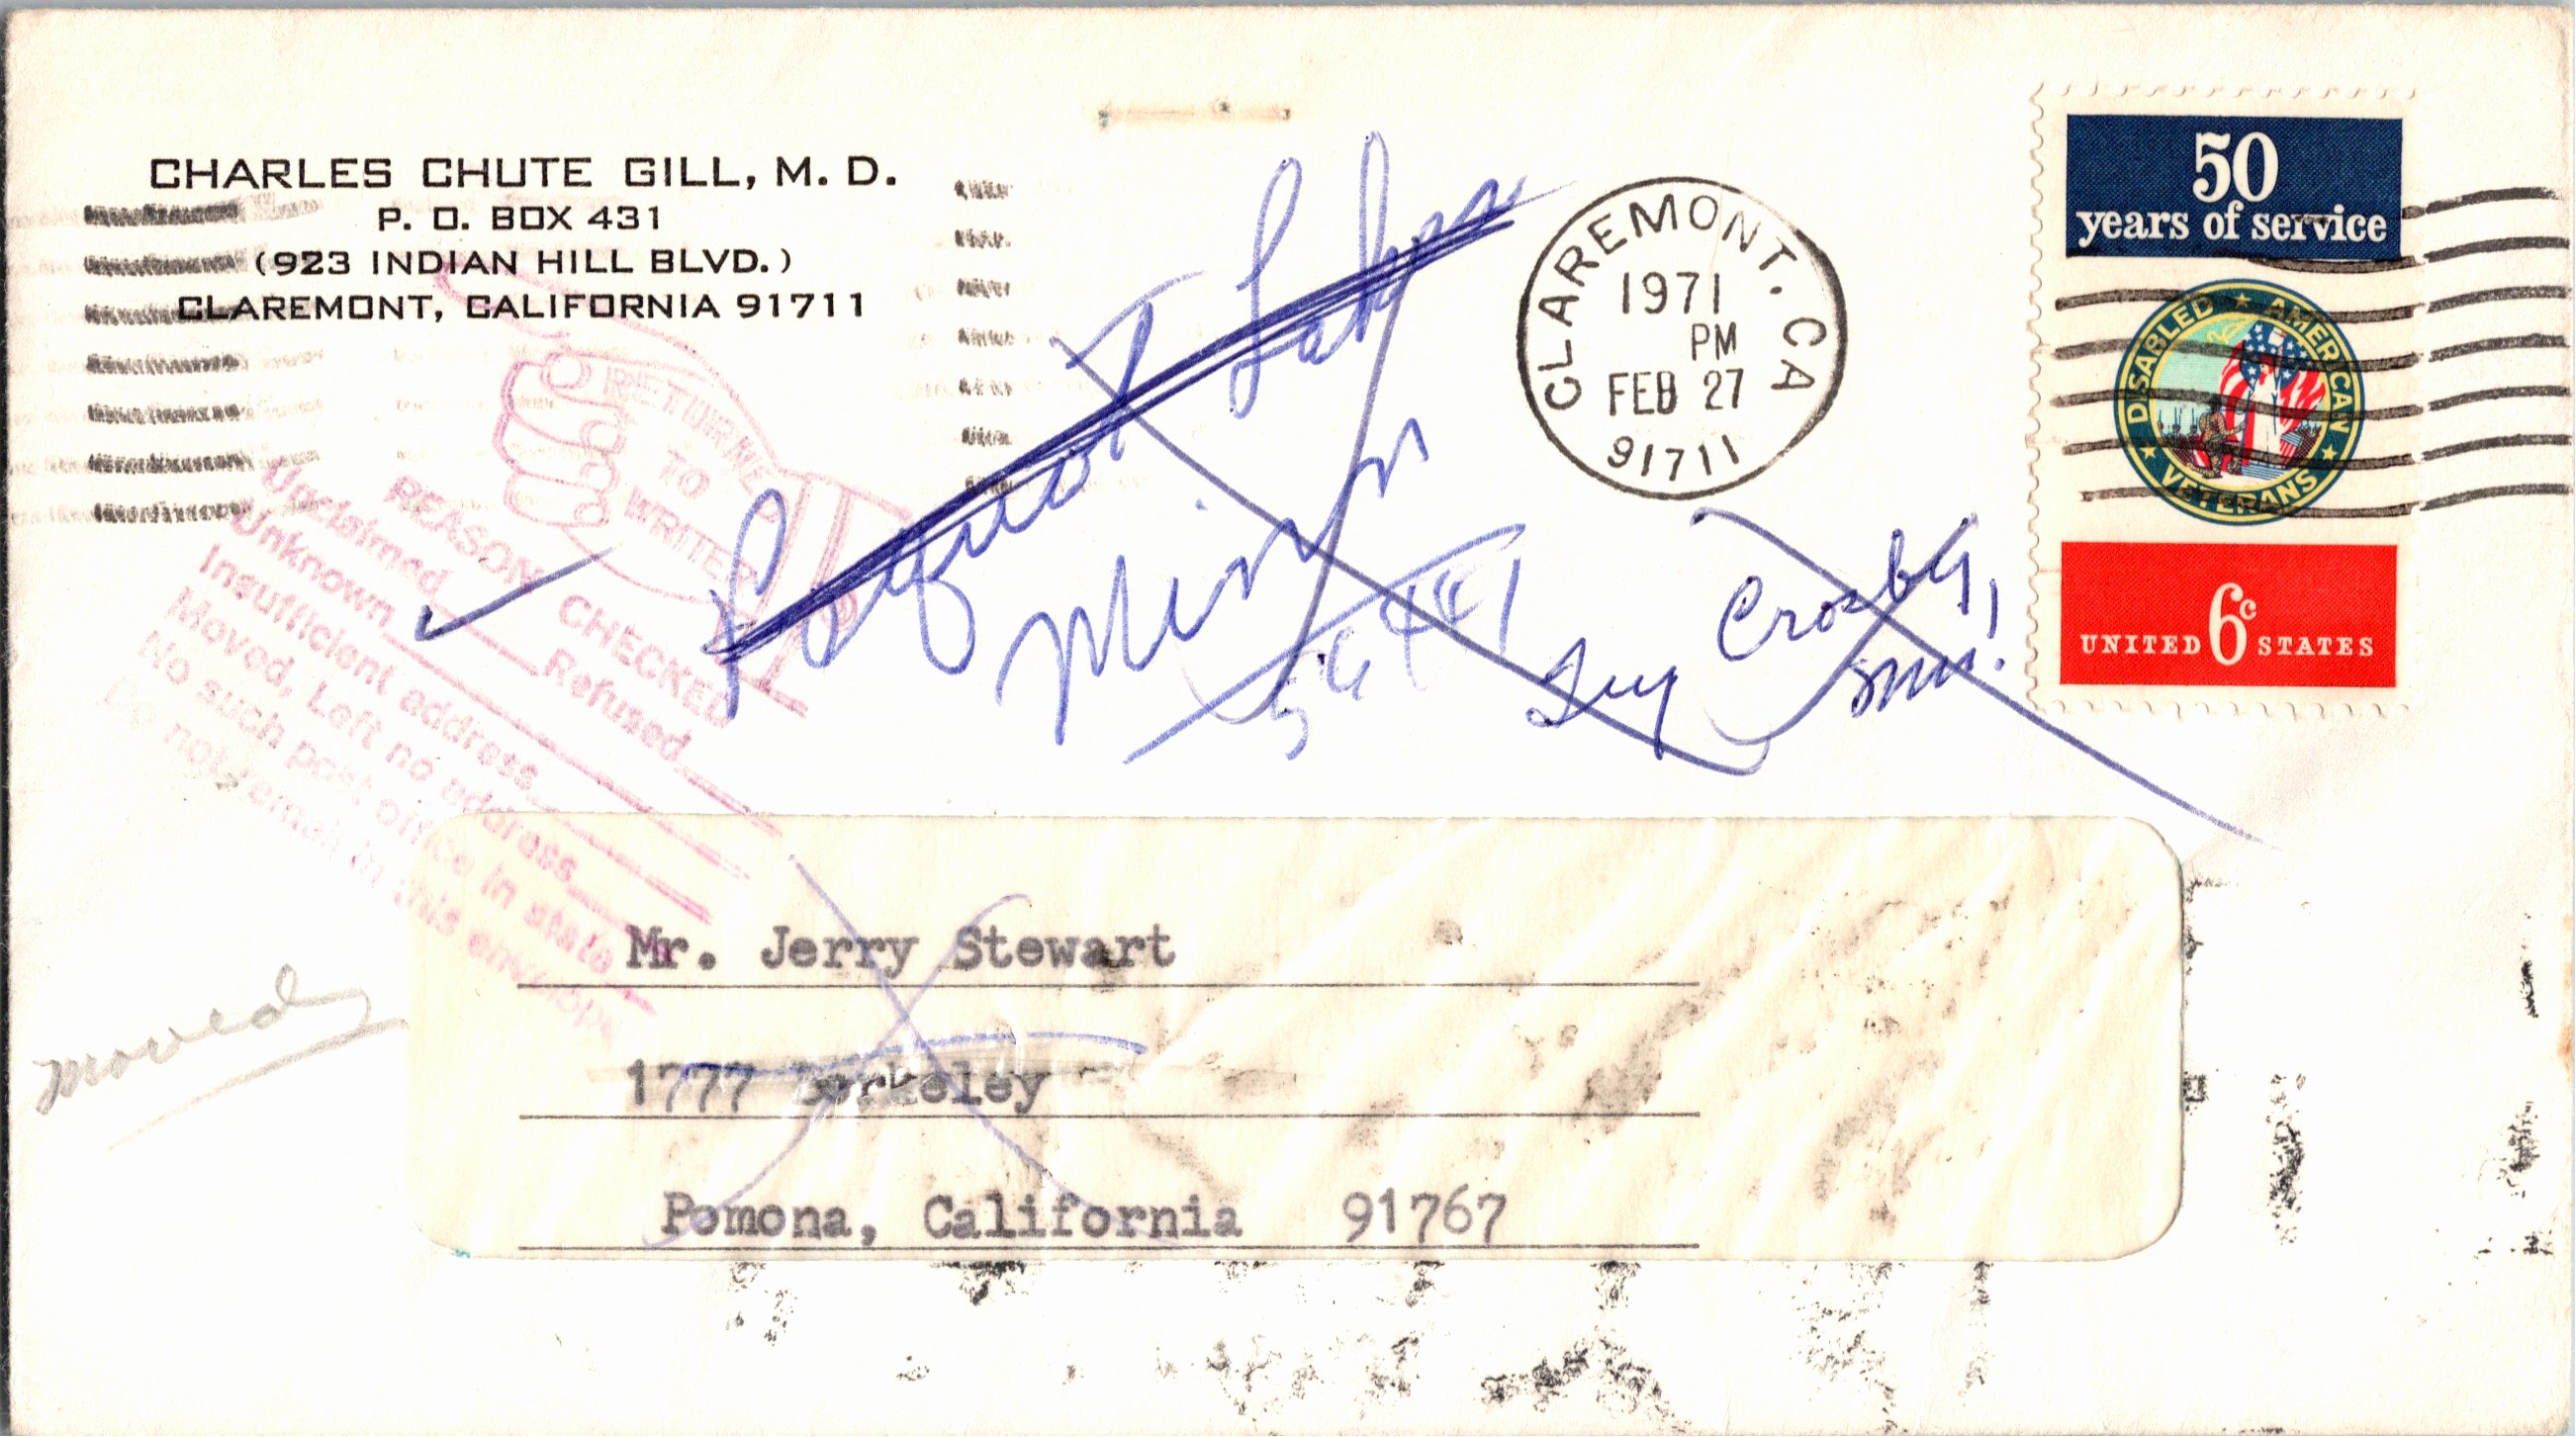 CHARLES CHUTE GILL, M. D.
P. O. BOX 431
(923 INDIAN HILL BLVD.)
CLAREMONT, CALIFORNIA 91711
CLAREMONT, CA
1971
PM
FEB 27
91711
50
years of service
DISABLED AMERICAN VETERANS
UNITED 6c STATES
Lakes
Minn
56441
Try Crosby,
Mn.
RETURNED
TO
WRITER
REASON CHECKED
Unclaimed Refused
Unknown
Insufficient address
Moved, Left no address
No such post office in state
Do not remail in this envelope
moved
Mr. Jerry Stewart
1777 Berkeley
Pomona, California 91767